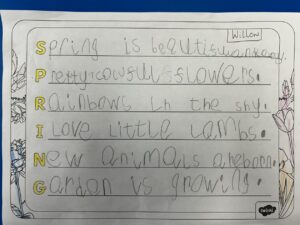 Willow
Spring is beautiful
Pretty flowers.
Rainbows in the sky.
I Love Little Lambs.
New animals are born.
Gardon is growing.
twinkl